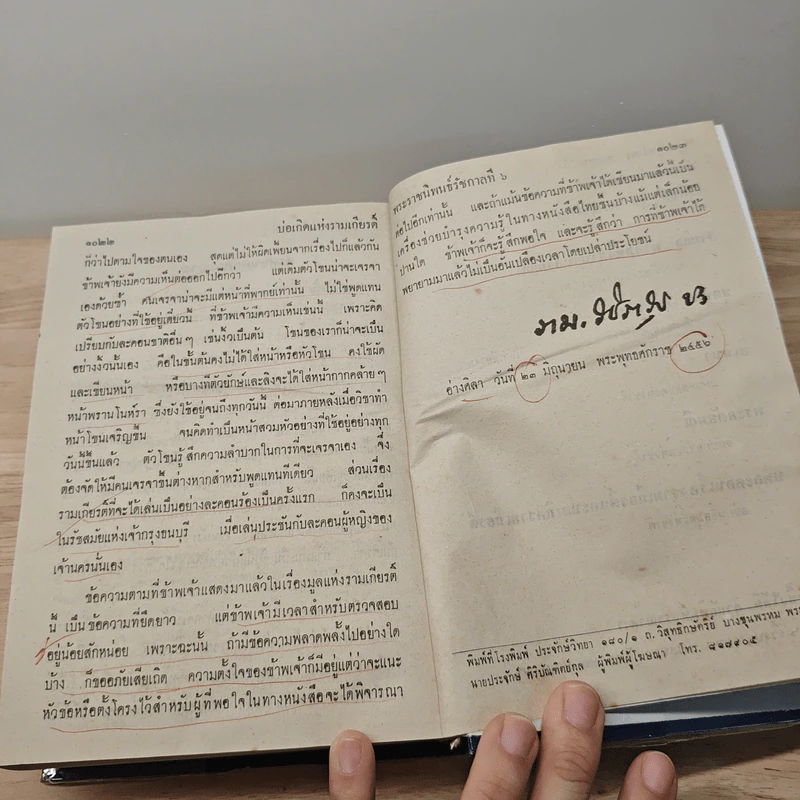 ๑๐๒๒ บ่อเกิดแห่งรามเกียรติ์
ก็ว่าไปตามใจของตนเอง สุดแต่ไม่ให้ผิดเพี้ยนจากเรื่องไปก็แล้วกัน
ข้าพเจ้ายังมีความเห็นต่อออกไปอีกว่า แต่เดิมตัวโขนน่าจะเจรจา
เองด้วยซ้ำ คนเจรจาน่าจะมีแต่หน้าที่พากย์เท่านั้น ไม่ใช่พูดแทน
ตัวโขนอย่างที่ใช้อยู่เดี๋ยวนี้ ที่ข้าพเจ้ามีความเห็นเช่นนี้ เพราะคิด
เปรียบกับละคอนชาติอื่น ๆ เช่นงิ้วเป็นต้น โขนของเราก็น่าจะเป็น
อย่างงิ้วนั้นเอง คือในชั้นต้นคงไม่ได้ใส่หน้าหรือหัวโขน คงใช้ผัด
และเขียนหน้า หรือบางทีตัวยักษ์และลิงจะได้ใส่หน้ากากคล้าย ๆ
หน้าพรานโนห์รา ซึ่งยังใช้อยู่จนถึงทุกวันนี้ ต่อมาภายหลังเมื่อวิชาทำ
หน้าโขนเจริญขึ้น จนคิดทำเป็นหน้าสวมหัวอย่างที่ใช้อยู่อย่างทุก
วันนี้ขึ้นแล้ว ตัวโขนรู้สึกความลำบากในการที่จะเจรจาเอง จึ่ง
ต้องจัดให้มีคนเจรจาขึ้นต่างหากสำหรับพูดแทนทีเดียว ส่วนเรื่อง
รามเกียรติ์ที่จะได้เล่นเป็นอย่างละคอนร้องเป็นครั้งแรก ก็คงจะเป็น
ในรัชสมัยแห่งเจ้ากรุงธนบุรี เมื่อเล่นประชันกับละคอนผู้หญิงของ
เจ้านครนั้นเอง
ข้อความตามที่ข้าพเจ้าแสดงมาแล้วในเรื่องมูลแห่งรามเกียรติ์
นี้ เป็นข้อความที่ยืดยาว แต่ข้าพเจ้ามีเวลาสำหรับตรวจสอบ
อยู่น้อยสักหน่อย เพราะฉะนั้น ถ้ามีข้อความพลาดพลั้งไปอย่างใด
บ้าง ก็ขออภัยเสียเถิด ความตั้งใจของข้าพเจ้าก็มีอยู่แต่ว่าจะแนะ
หัวข้อหรือตั้งโครงไว้สำหรับผู้ที่พอใจในทางหนังสือจะได้พิจารณา
พระราชนิพนธ์รัชกาลที่ ๖ ๑๐๒๓
ต่อไปอีกเท่านั้น และถ้าแม้นข้อความที่ข้าพเจ้าได้เขียนมาแล้วนี้เป็น
เครื่องช่วยบำรุงความรู้ในทางหนังสือไทยขึ้นบ้างแม้แต่เล็กน้อย
ปานใด ข้าพเจ้าก็จะรู้สึกพอใจ และจะรู้สึกว่า การที่ข้าพเจ้าได้
พยายามมาแล้วไม่เป็นอันเปลืองเวลาโดยเปล่าประโยชน์
อ่างศิลา วันที่ ๒๓ มิถุนายน พระพุทธศักราช ๒๔๕๖
พิมพ์ที่โรงพิมพ์ ประจักษ์วิทยา ๑๘๐/๑ ถ.วิสุทธิกษัตริย์ บางขุนพรหม พระ
นายประจักษ์ ศิริบัณฑิตย์กุล ผู้พิมพ์ผู้โฆษณา โทร. ๘๑๗๙๐๕